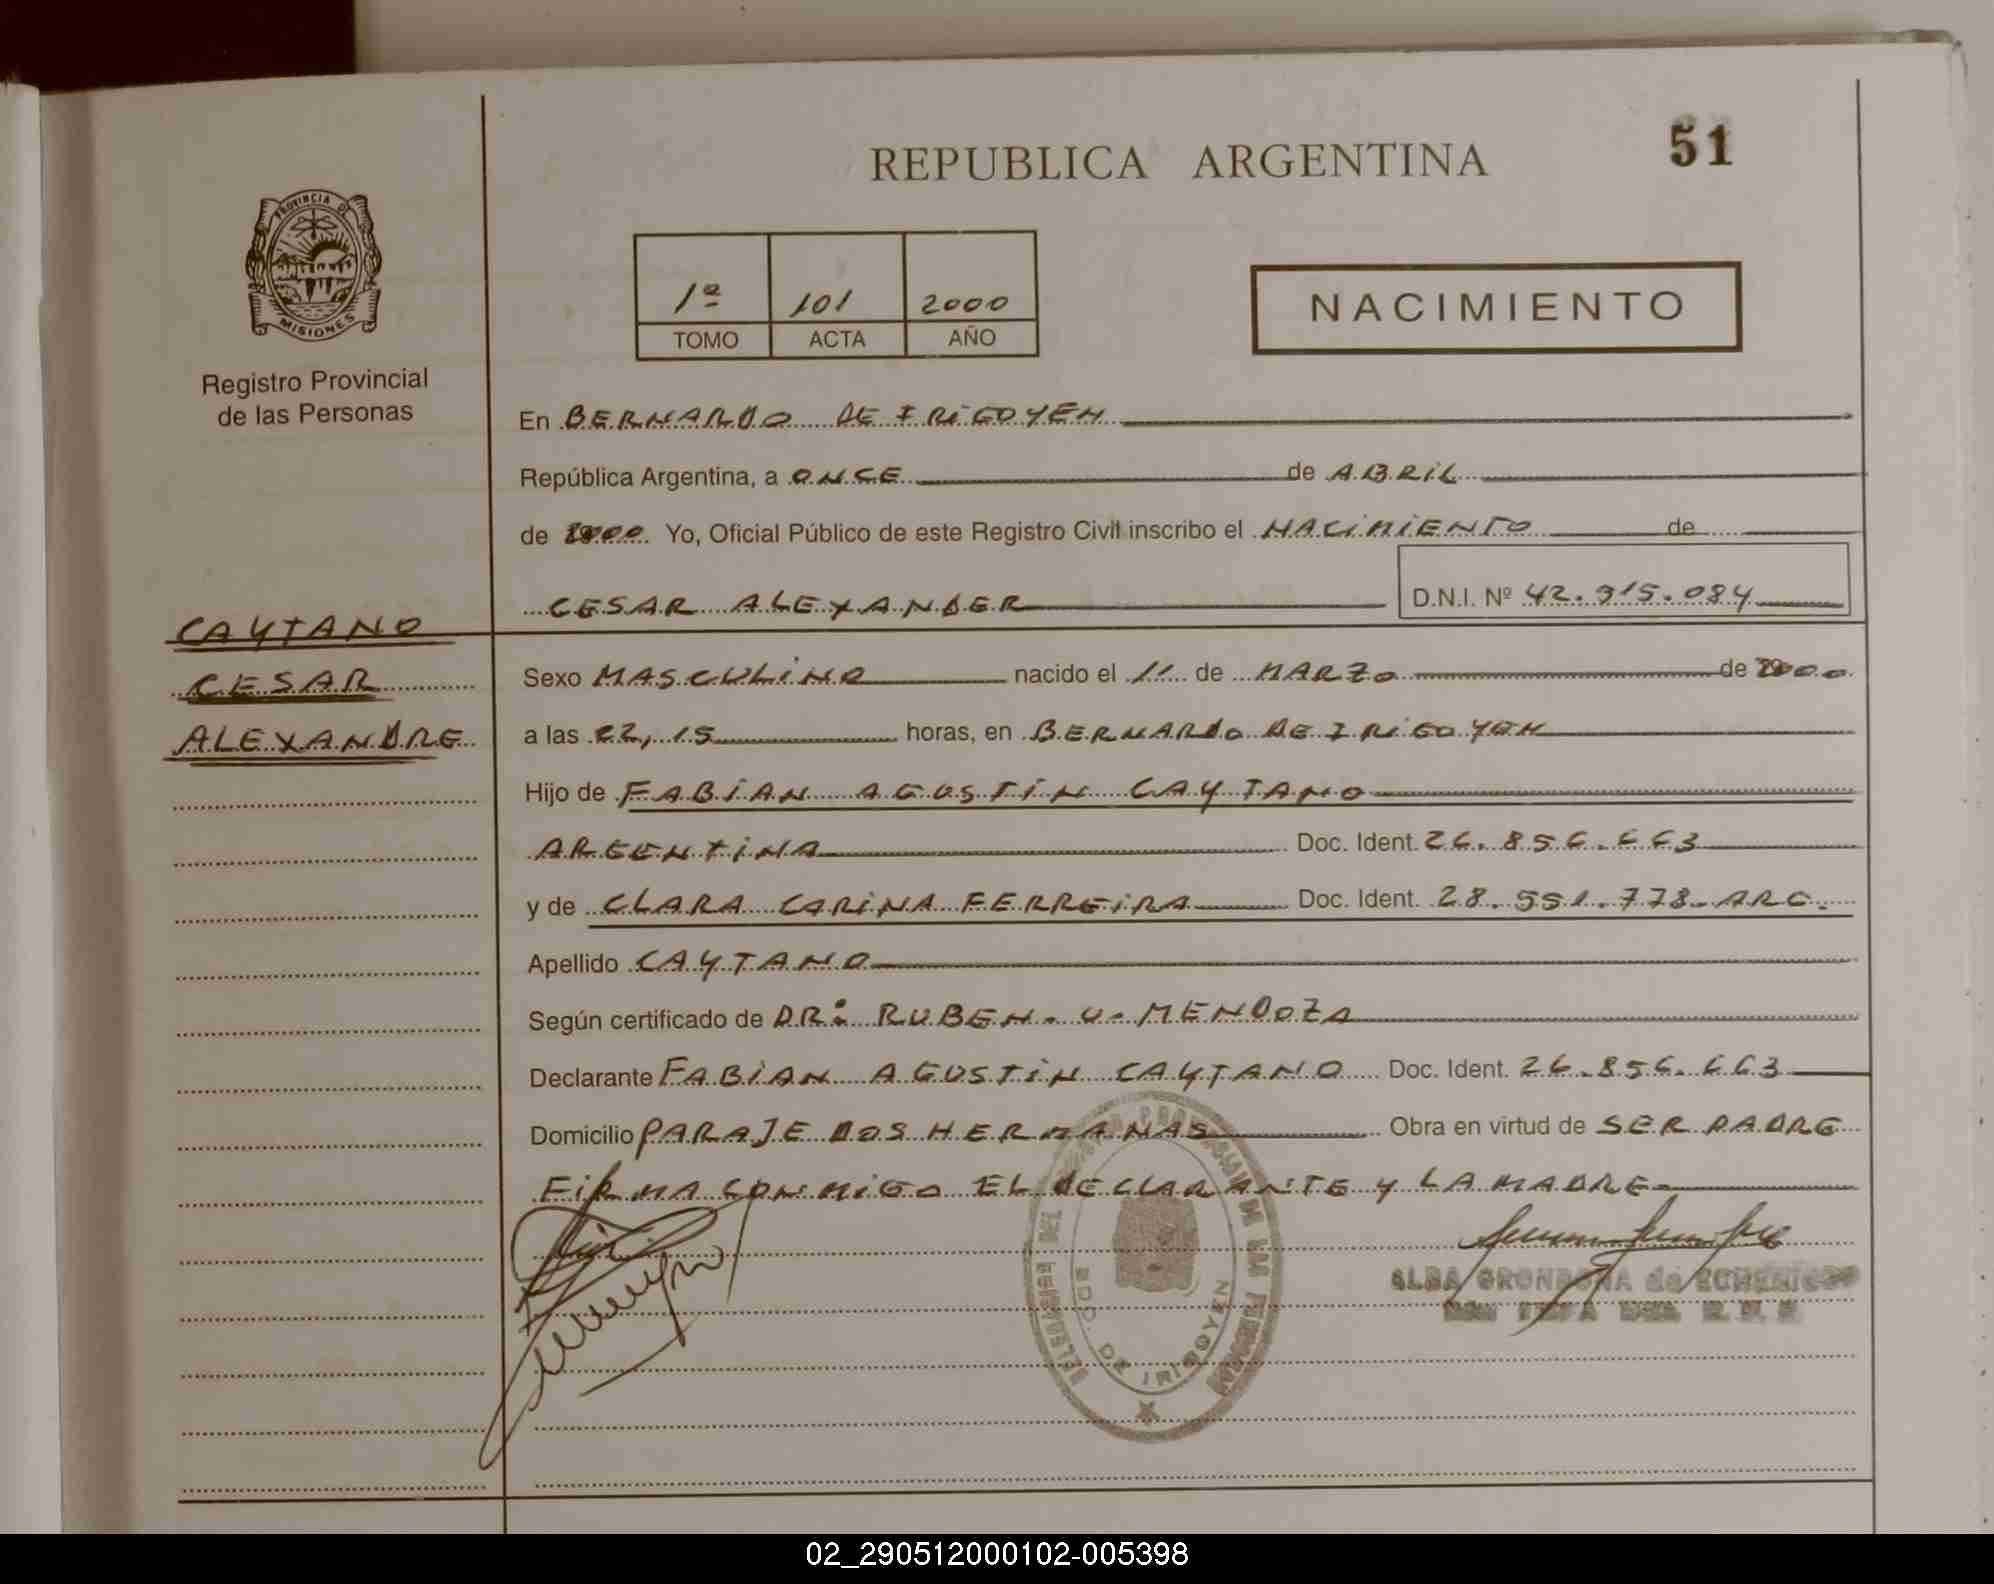 REPUBLICA ARGENTINA
51
PROVINCIA DE
MISIONES
Registro Provincial
de las Personas
1ª 101 2000
TOMO ACTA AÑO
NACIMIENTO
En BERNARDO DE IRIGOYEN
República Argentina, a ONCE de ABRIL
de 2000. Yo, Oficial Público de este Registro Civil inscribo el NACIMIENTO de
CESAR ALEXANDER D.N.I. Nº 42.315.084
CAYTANO
CESAR
ALEXANDRE
Sexo MASCULINO nacido el 11 de MARZO de 2000.
a las 22,15 horas, en BERNARDO DE IRIGOYEN
Hijo de FABIAN AGUSTIN CAYTANO
ARGENTINA Doc. Ident. 26.856.663
y de CLARA CARINA FERREIRA Doc. Ident. 28.551.778-ARG.
Apellido CAYTANO
Según certificado de DR: RUBEN. U. MENDOZA
Declarante FABIAN AGUSTIN CAYTANO Doc. Ident. 26.856.663
Domicilio PARAJE DOS HERMANAS Obra en virtud de SER PADRE
FIRMA CONMIGO EL DECLARANTE Y LA MADRE-
DEL
DE LAS
BDO. DE IRIGOYEN
ALBA GRONDONA de
02_290512000102-005398